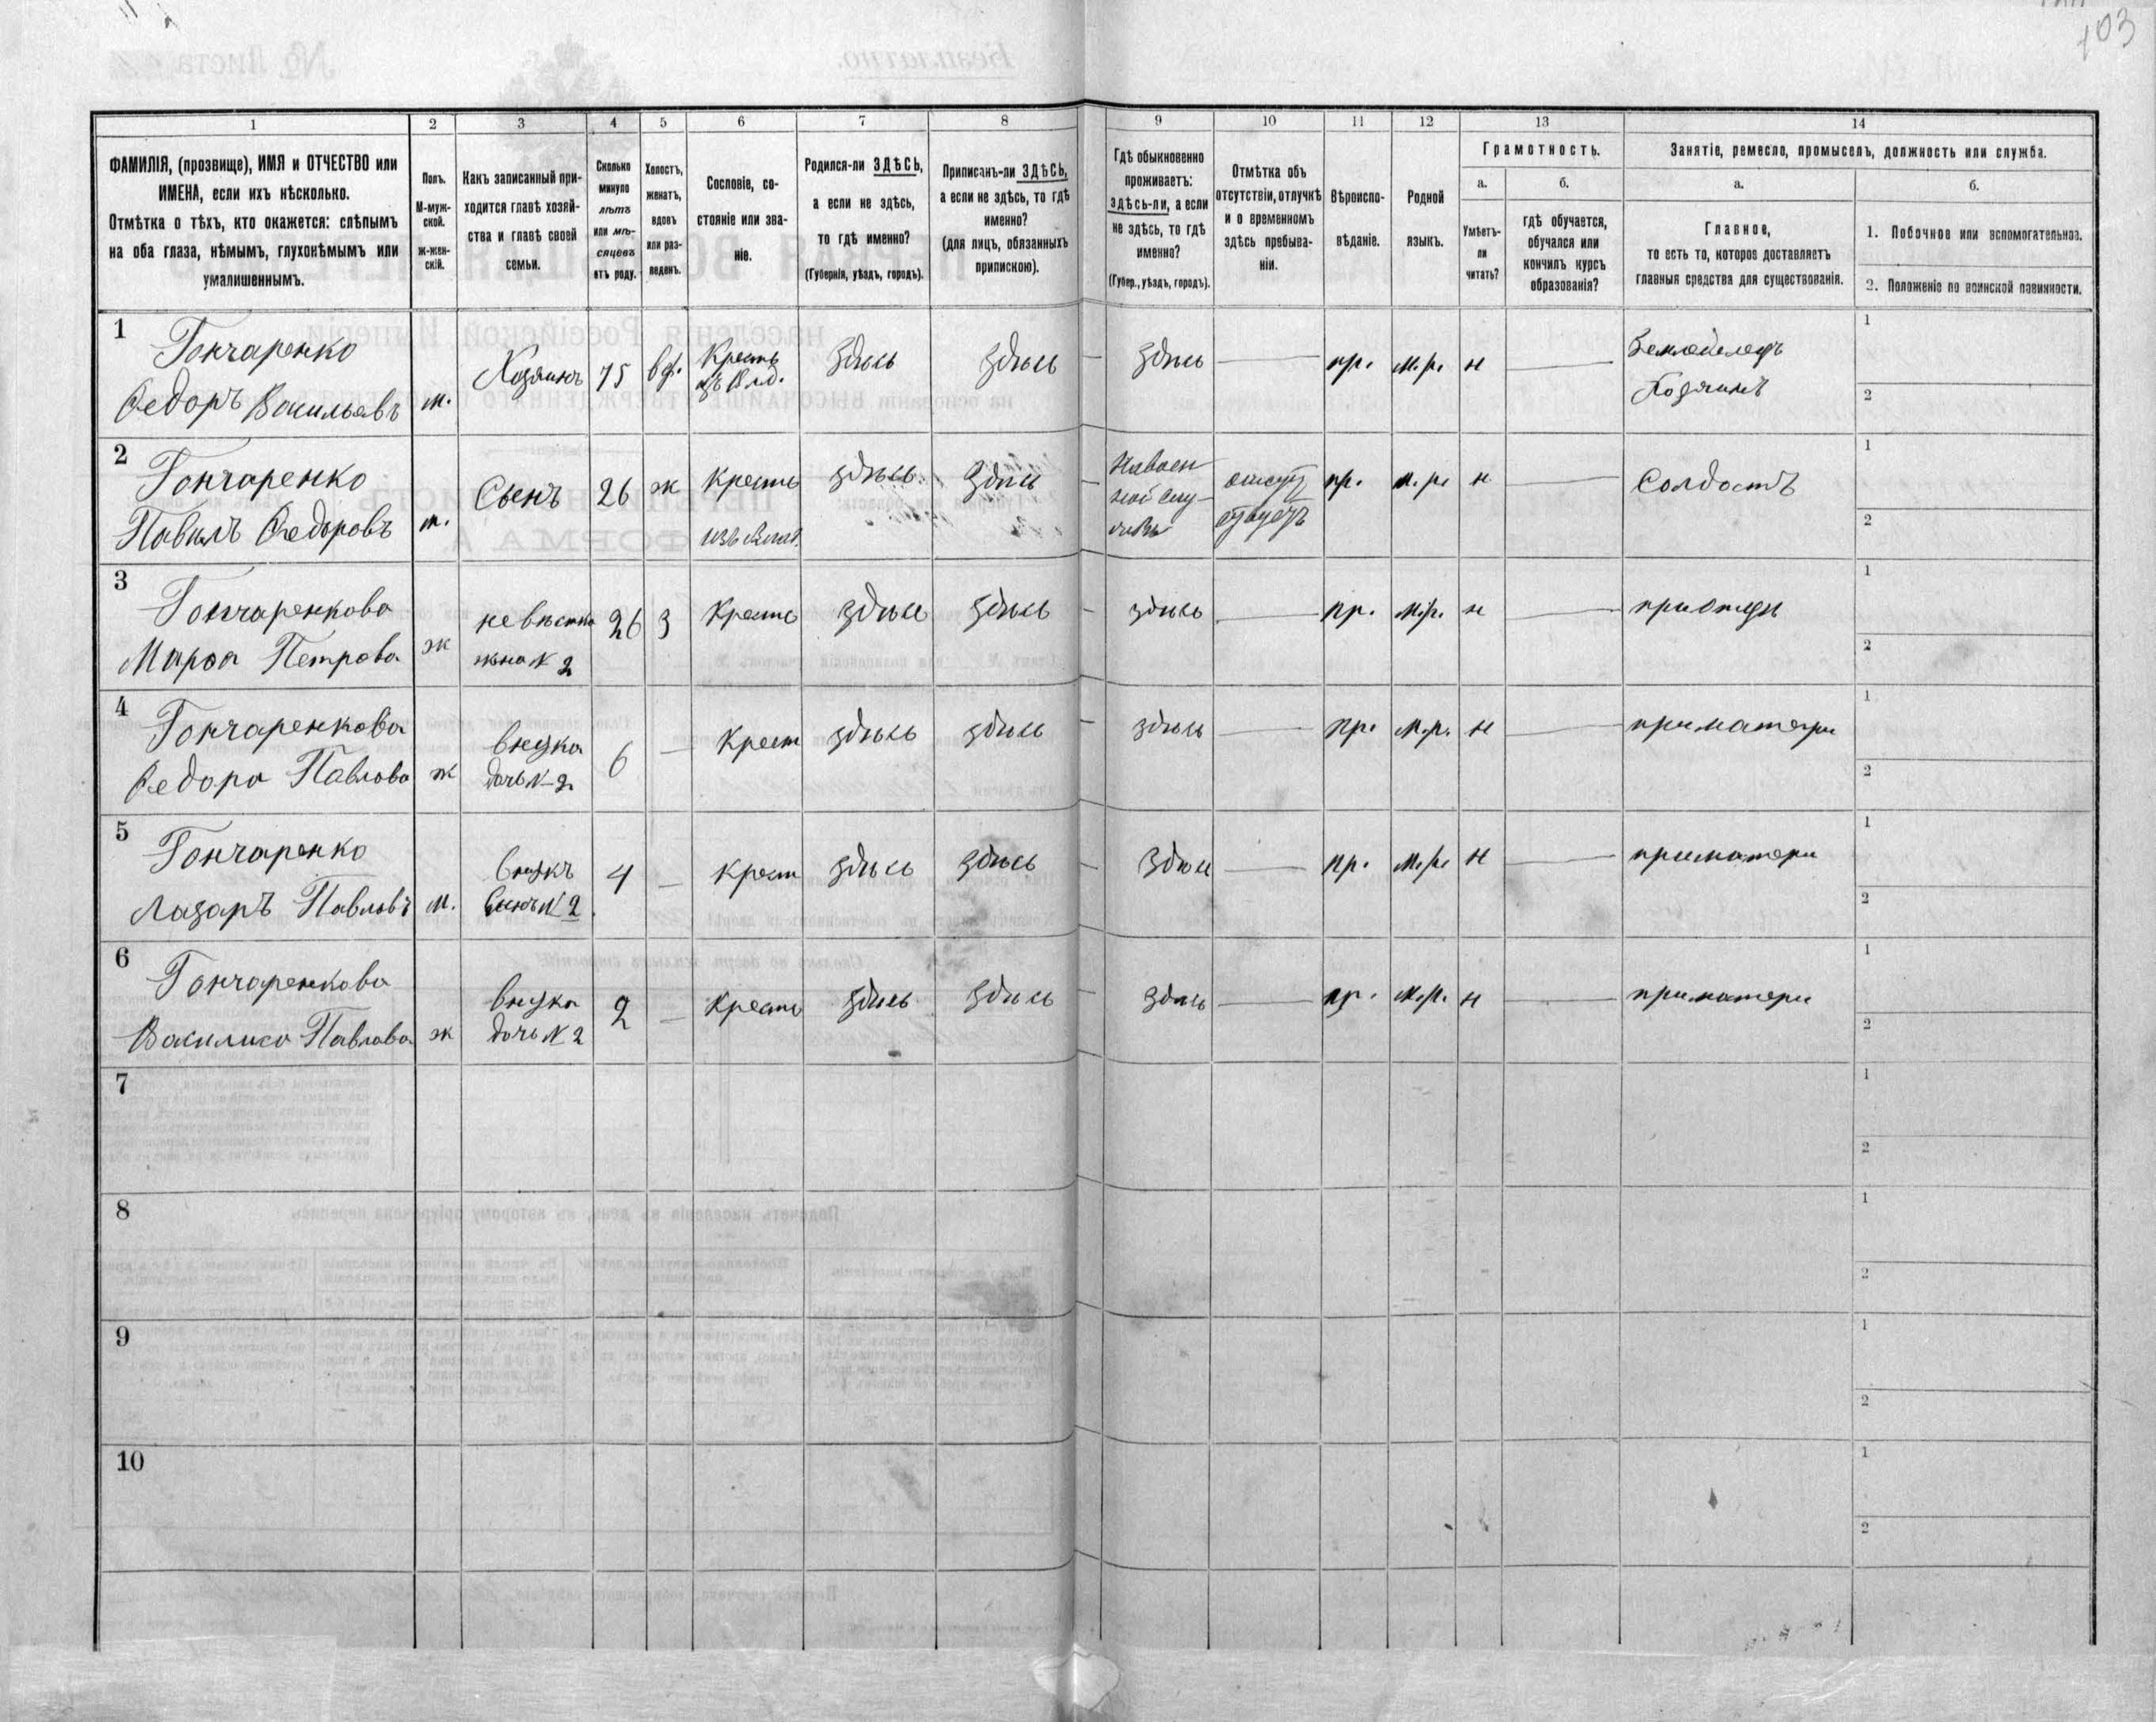 103
1 2 3 4 5 6 7 8 9 10 11 12 13 14
ФАМИЛІЯ, (прозвище), ИМЯ и ОТЧЕСТВО или
ИМЕНА, если ихъ нѣсколько.
Отмѣтка о тѣхъ, кто окажется: слѣпымъ
на оба глаза, нѣмымъ, глухонѣмымъ или
умалишеннымъ.
Полъ.
М-муж-
ской.
Ж-жен-
скій.
Какъ записанный при-
ходится главѣ хозяй-
ства и главѣ своей
семьи.
Сколько
минуло
лѣтъ
или мѣ-
сяцевъ
отъ роду.
Холостъ,
женатъ,
вдовъ
или раз-
веденъ.
Сословіе, со-
стояніе или зва-
ніе.
Родился-ли ЗДѢСЬ,
а если не здѣсь,
то гдѣ именно?
(Губернія, уѣздъ, городъ).
Приписанъ-ли ЗДѢСЬ,
а если не здѣсь, то гдѣ
именно?
(для лицъ, обязанныхъ
припискою).
Гдѣ обыкновенно
проживаетъ:
здѣсь-ли, а если
не здѣсь, то гдѣ
именно?
(Губер., уѣздъ, городъ).
Отмѣтка объ
отсутствіи, отлучкѣ
и о временномъ
здѣсь пребыва-
ніи.
Вѣроиспо-
вѣданіе.
Родной
языкъ.
Грамотность.
а.
Умѣетъ-
ли
читать?
б.
гдѣ обучается,
обучался или
кончилъ курсъ
образованія?
Занятіе, ремесло, промыселъ, должность или служба.
а.
Главное,
то есть то, которое доставляетъ
главныя средства для существованія.
б.
1. Побочное или вспомогательное.
2. Положеніе по воинской повинности.
1
Гончаренко
Федоръ Васильевъ
м.
Хозяинъ
75
вд.
Кресть
изъ Влад.
Здѣсь
Здѣсь
Здѣсь
пр.
м.р.
н
Земледелецъ
Хозяинъ
1
2
2
Гончаренко
Павилъ Федоровъ
м.
Сынъ
26
ж
Кресть
изъ Влад.
здѣсь
Здѣсь
На воен
ной слу
жбѣ
отсут
ствуетъ
пр.
м.р.
н
Солдатъ
1
2
3
Гончаренкова
Марѳа Петрова
ж
невѣстка
жена № 2
26
З
Кресть
здѣсь
здѣсь
здѣсь
пр.
м.р.
н
при отцѣ
1
2
4
Гончаренкова
Федора Павлова
ж
внучка
дочь № 2
6
Крест
здѣсь
здѣсь
здѣсь
пр.
м.р.
н
при матери
1
2
5
Гончаренко
Лазаръ Павловъ
м.
Внукъ
Сынъ № 2
4
Крест
здѣсь
здѣсь
Здѣсь
пр.
м.р.
н
при матери
1
2
6
Гончаренкова
Василиса Павлова
ж
внучка
дочь № 2
2
Кресть
здѣсь
здѣсь
здѣсь
пр.
м.р.
н
при матери
1
2
7
1
2
8
1
2
9
1
2
10
1
2